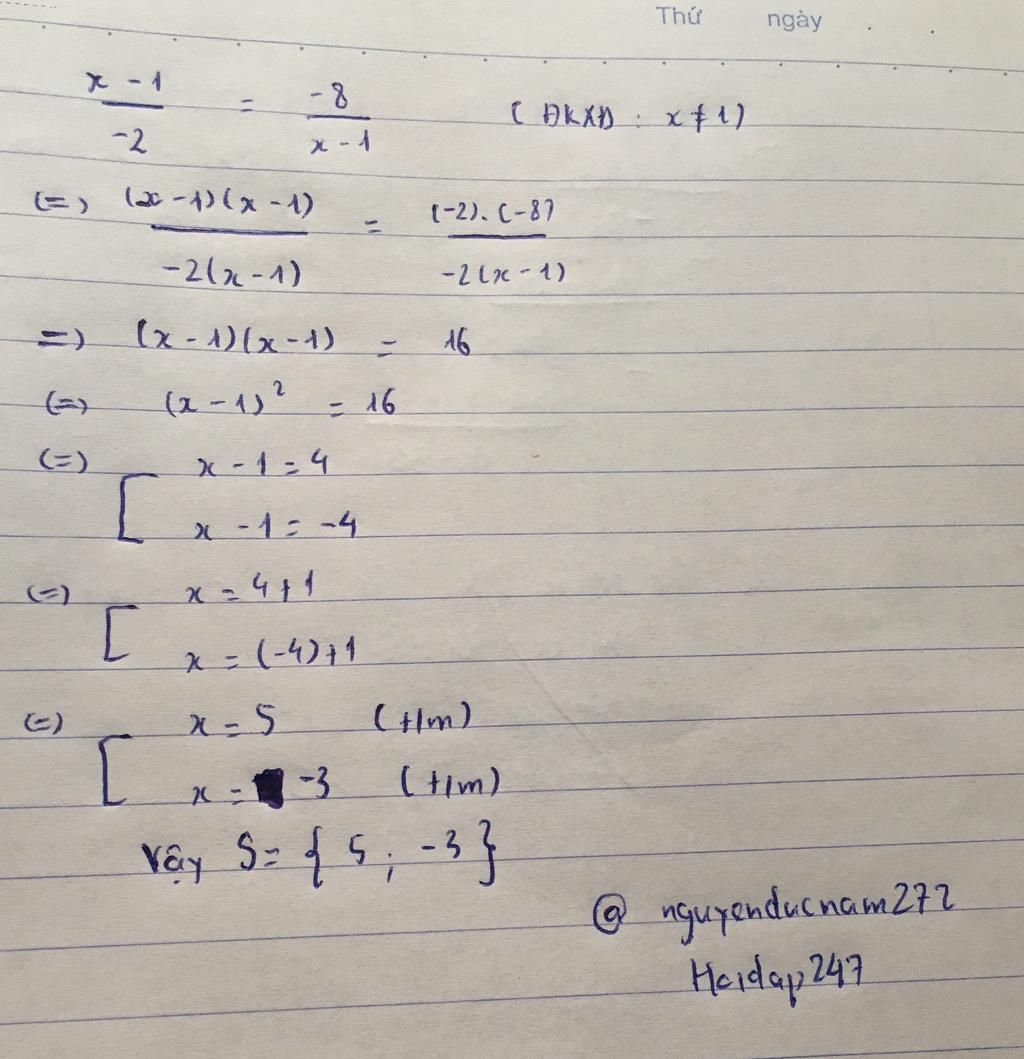 Thứ ngày . .
x - 1 / -2 = -8 / x - 1 (ĐKXĐ : x ≠ 1)
(=) (x - 1)(x - 1) / -2(x - 1) = (-2).(-8) / -2(x - 1)
=) (x - 1)(x - 1) = 16
(=) (x - 1)² = 16
(=) [ x - 1 = 4
x - 1 = -4
(=) [ x = 4 + 1
x = (-4) + 1
(=) [ x = 5 (t/m)
x = -3 (t/m)
Vậy S = { 5 ; -3 }
@ nguyenducnam272
Hoidap247